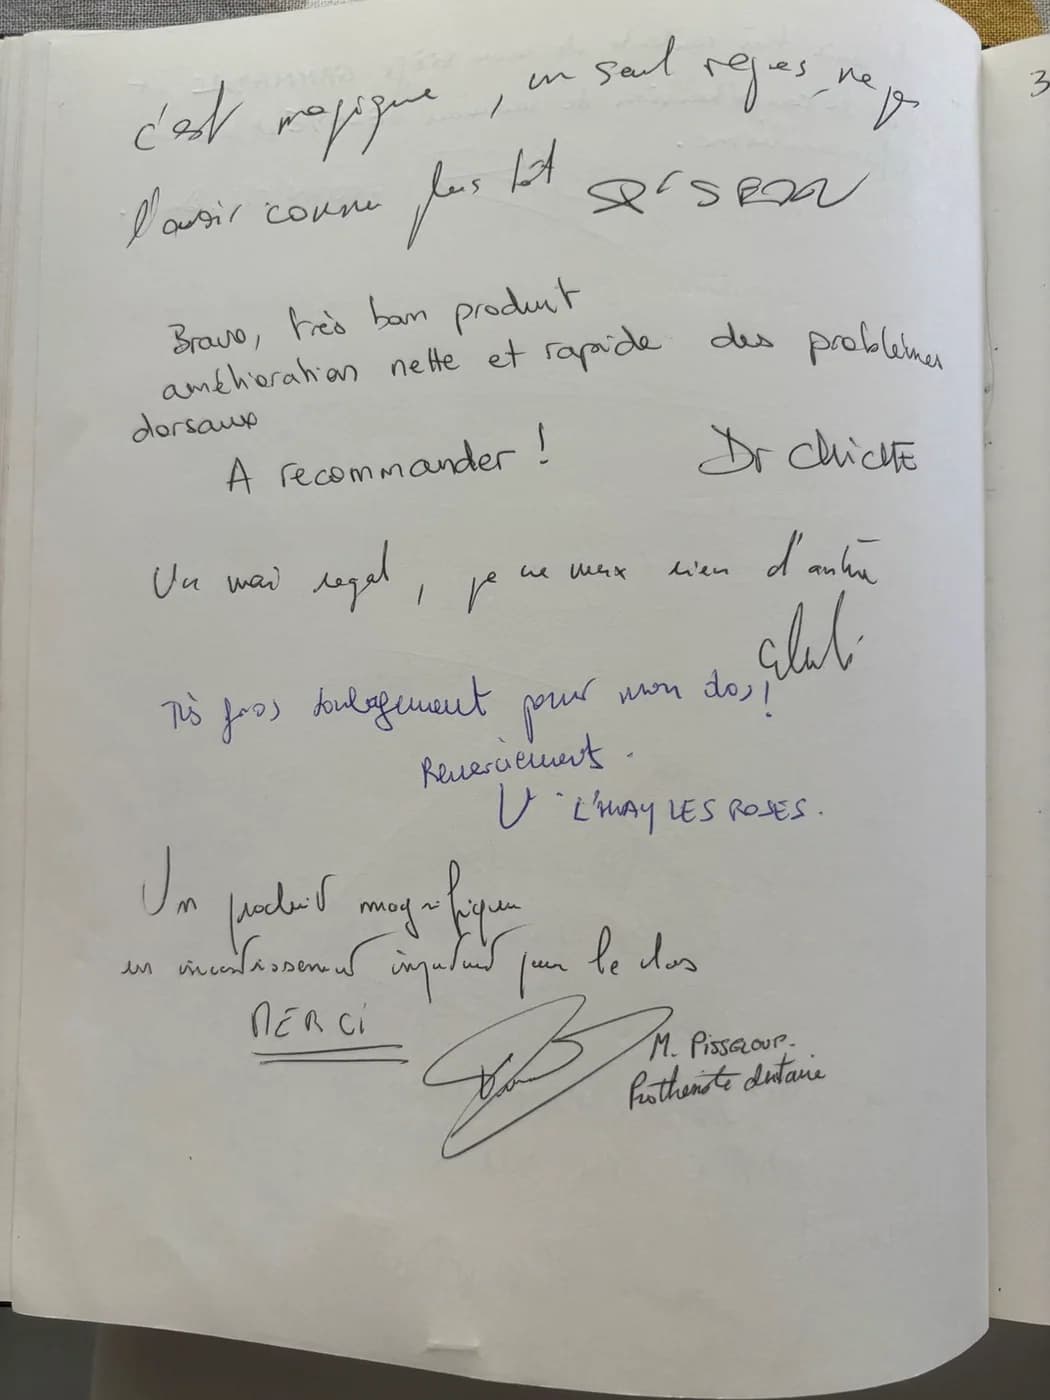 c'est magique, un seul regres, ne pas
l'avoir connu plus tôt Dr SROR
Bravo, très bon produit
amélioration nette et rapide des problèmes
dorsaux
A recommander !
Dr CHICHE
Un vrai regal, je ne veux rien d'autre
Très gros soulagement pour mon dos !
Remerciements.
L'HAY LES ROSES.
Un produit magnifique
un investissement important pour le dos
MERCI
M. PISSELOUP.
Prothesiste dentaire
3